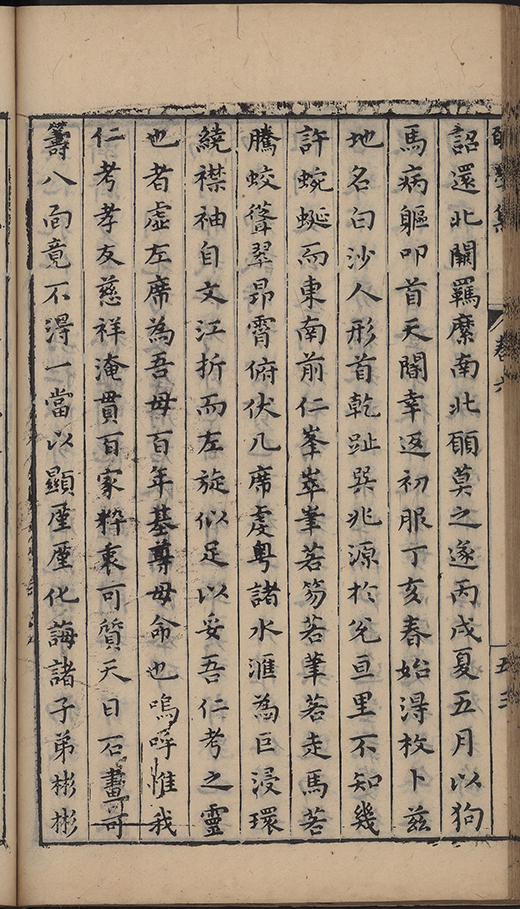 集
卷六
五三
詔還北闕羈縻南北願莫之遂丙戌夏五月以狗
馬病軀叩首天閽幸返初服丁亥春始淂枚卜茲
地名白沙人形首乾趾巽兆源於兊亘里不知幾
許蜿蜒而東南前仁峯崒嵂若笏若筆若走馬若
騰蛟聳翠昻霄俯伏几席虔粤諸水滙為巨浸環
繞襟袖自文江折而左旋似足以妥吾仁考之靈
也者虛左席為吾母百年基尊母命也嗚呼惟我
仁考孝友慈祥淹貫百家粹衷可質天日石畫可
籌八面竟不淂一當以顯𫝑𫝑化誨諸子弟彬彬